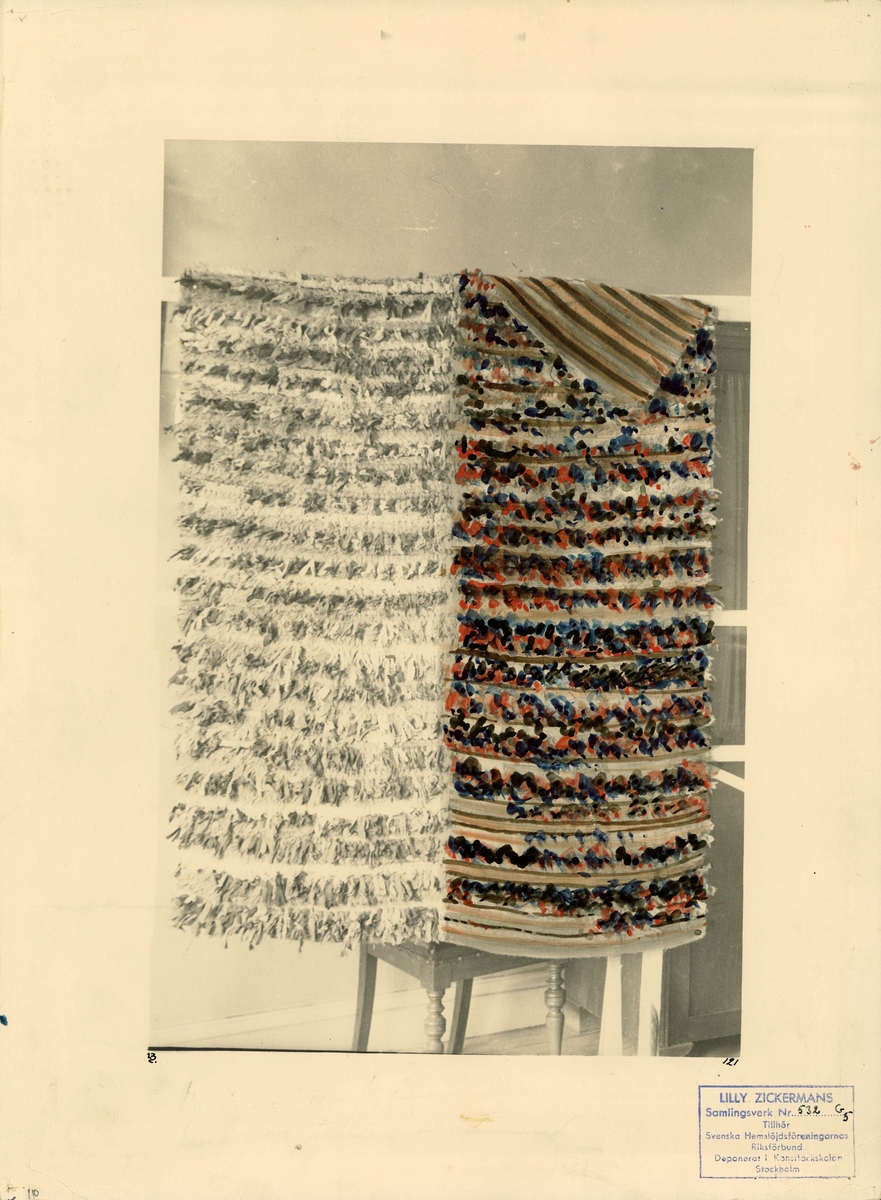 23.
121
LILLY ZICKERMANS
Samlingsverk Nr. 532 G5
Tillhör
Svenska Hemslöjdsföreningarnas
Riksförbund
Deponerat i Konstfackskolan
Stockholm